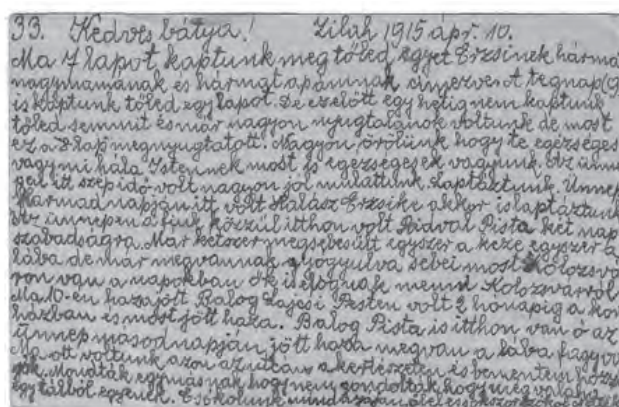 33. Kedves bátya! Zilah 1915 ápr. 10.
Ma 7 lapot kaptunk meg tőled egyet Erzsinek hármat
nagymamának és hármat apámnak címezve ot tegnap (9
is kaptunk tőled egy lapot. De ezelőtt egy hétig nem kaptunk
tőled semmit és már nagyon nyugtalanok voltunk de most
ez a 8 lap megnyugtatott. Nagyon örölünk hogy te egészséges
vagy mi hála Istennek most is egészségesek vagyunk. Az ünne
pen itt szép idő volt nagyon jól mulattunk. Laptáztunk. Ünnep
harmad napján itt volt Halász Erzsike akkor is laptáztunk
Az ünnepen a fiuk közzül itthon volt Pista két nap
szabadságra. Már kétszer megsebesült egyszer a keze egyszer a
lába de már megvannak gyógyulva sebei most Kolozsvá
ron van a napokban ők is elognak menni Kolozsvárról
Ma 10-én hazajött Balog Lajcsi Pesten volt 3 hónapig a kor
házban és most jött haza. Balog Pista is itthon van ő az
Ünnep másodnapján jött haza megvan a lába fagyva
Ma ott voltunk azon az utcán a kertészeten és bementem hozzá
jok. Mondták egymásnak hogy nem gondolták hogy még valaha
egy tálból egyenek. Csókolunk mindnyájan